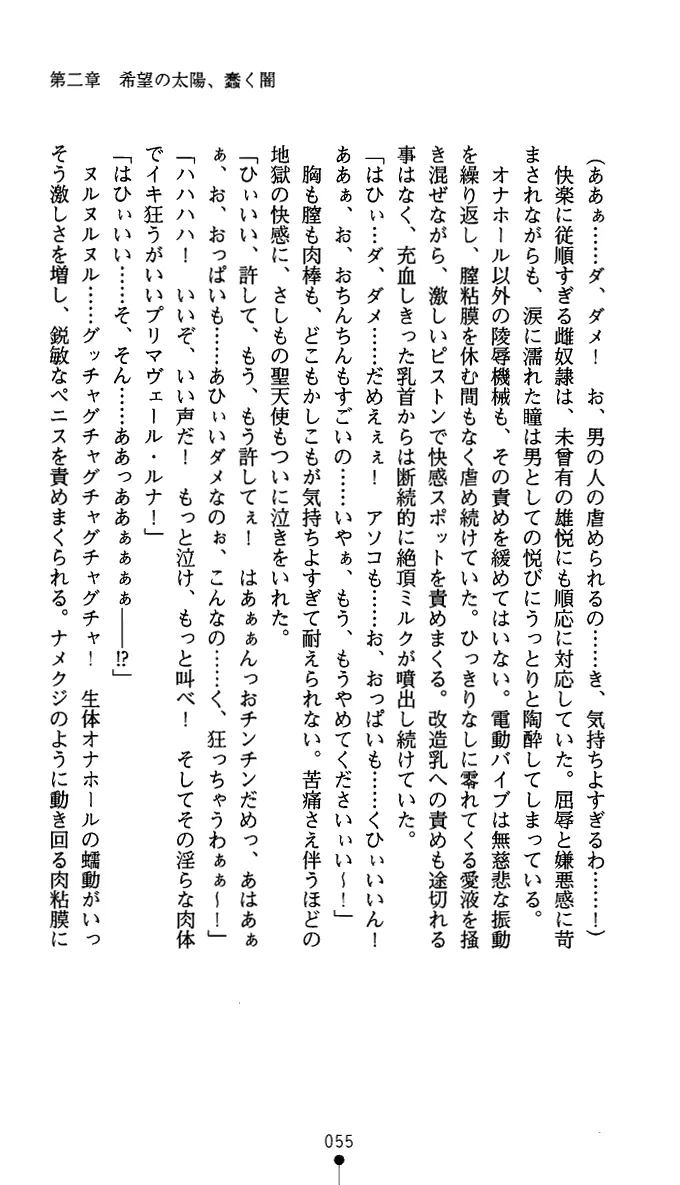 第二章　希望の太陽、蠢く闇
（ああぁ……ダ、ダメ！　お、男の人の虐められるの……き、気持ちよすぎるわ……！）
快楽に従順すぎる雌奴隷は、未曾有の雄悦にも順応に対応していた。屈辱と嫌悪感に苛
まされながらも、涙に濡れた瞳は男としての悦びにうっとりと陶酔してしまっている。
オナホール以外の陵辱機械も、その責めを緩めてはいない。電動バイブは無慈悲な振動
を繰り返し、膣粘膜を休む間もなく虐め続けていた。ひっきりなしに零れてくる愛液を掻
き混ぜながら、激しいピストンで快感スポットを責めまくる。改造乳への責めも途切れる
事はなく、充血しきった乳首からは断続的に絶頂ミルクが噴出し続けていた。
「はひぃ…ダ、ダメ……だめえぇぇ！　アソコも……お、おっぱいも……くひぃいいん！
ああぁ、お、おちんちんもすごいの……いやぁ、もう、もうやめてくださいぃい～！」
胸も膣も肉棒も、どこもかしこもが気持ちよすぎて耐えられない。苦痛さえ伴うほどの
地獄の快感に、さしもの聖天使もついに泣きをいれた。
「ひぃいい、許して、もう、もう許してぇ！　はあぁぁんっおチンチンだめっ、あはあぁ
ぁ、お、おっぱいも……あひぃいダメなのぉ、こんなの……く、狂っちゃうわぁぁ～！」
「ハハハハ！　いいぞ、いい声だ！　もっと泣け、もっと叫べ！　そしてその淫らな肉体
でイキ狂うがいいプリマヴェール・ルナ！」
「はひぃいい……そ、そん……ああっああぁぁぁぁ――!?」
ヌルヌルヌル……グッチャグチャグチャグチャ！　生体オナホールの蠕動がいっ
そう激しさを増し、鋭敏なペニスを責めまくられる。ナメクジのように動き回る肉粘膜に
055